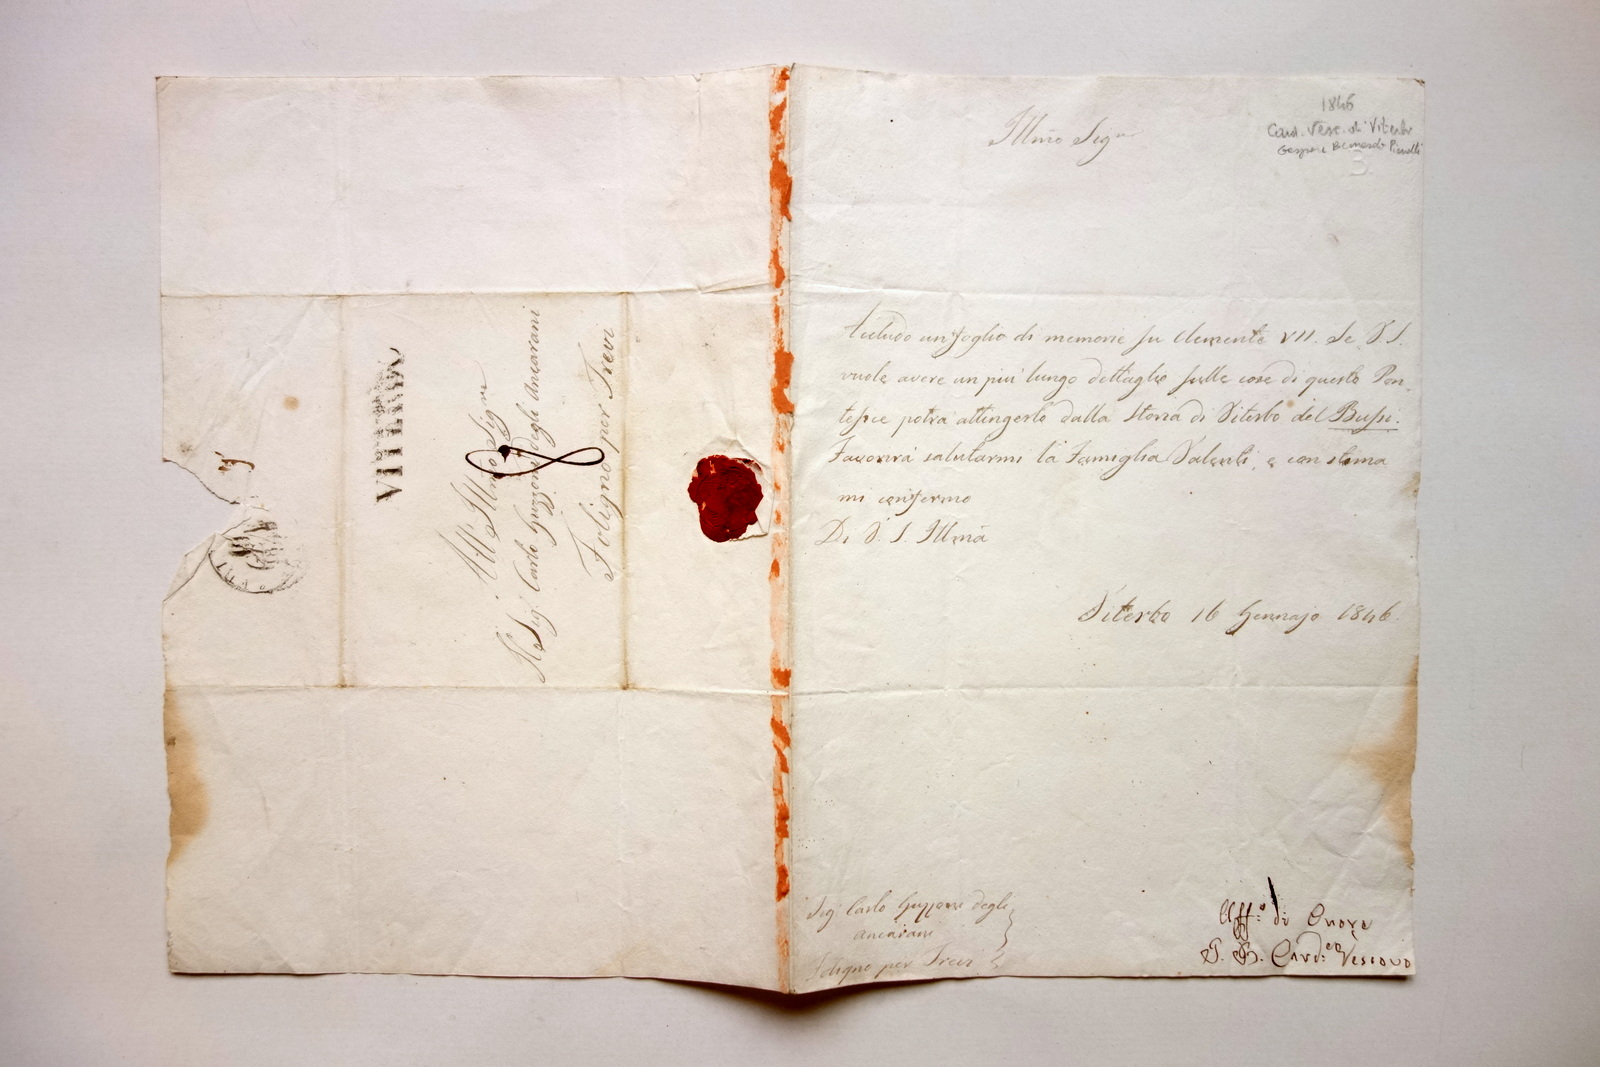 VITERBO
All' Illmo Signre
Il Sig. Carlo Guzzoni degli Ancarani
Foligno per Trevi
1846
Card. Vesc. di Viterbo
Gaspare Bernardo Pianetti
Illmo Sigre
Includo un foglio di memorie su Clemente VII. Se V. S.
vuole avere un piu' lungo dettaglio sulle cose di questo Pon-
tefice potrà attingerlo dalla Storia di Viterbo del Bussi.
Favorirà salutarmi la Famiglia Valenti, e con stima
mi confermo
Di V. S. Illma
Viterbo 16 Gennajo 1846.
Sig. Carlo Guzzoni degli
Ancarani
Foligno per Trevi
Affo. di Cuore
G. B. Card. Vescovo